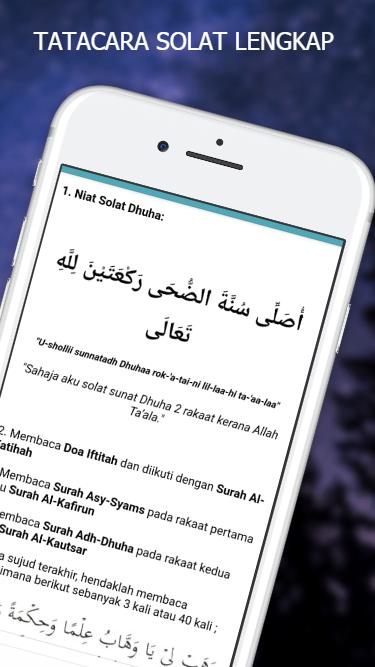 TATACARA SOLAT LENGKAP
1. Niat Solat Dhuha:
أُصَلِّى سُنَّةَ الضُّحَى رَكْعَتَيْنِ لِلَّهِ
تَعَالَى
"U-shollii sunnatadh Dhuhaa rok-'a-tai-ni lil-laa-hi ta-'aa-laa"
"Sahaja aku solat sunat Dhuha 2 rakaat kerana Allah
Ta'ala."
2. Membaca Doa Iftitah dan diikuti dengan Surah Al-
Fatihah
Membaca Surah Asy-Syams pada rakaat pertama
u Surah Al-Kafirun
embaca Surah Adh-Dhuha pada rakaat kedua
Surah Al-Kautsar
a sujud terakhir, hendaklah membaca
imana berikut sebanyak 3 kali atau 40 kali ;
وَهَبْ لِيْ يَا وَهَّابُ عِلْمًا وَحِكْمَةً